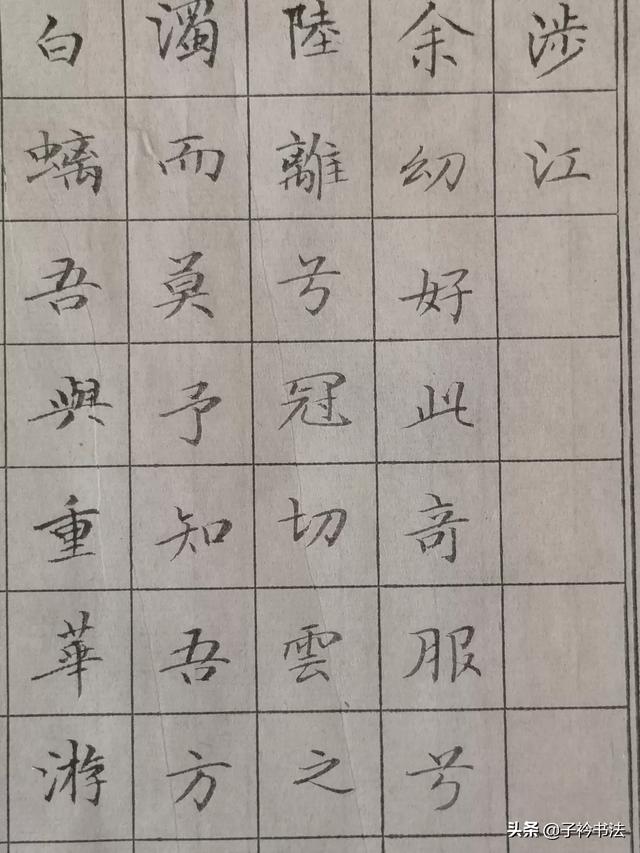 涉江
余幼好此奇服兮
陸離兮冠切雲之
濁而莫予知吾方
白螭吾與重華游
头条@子衿书法